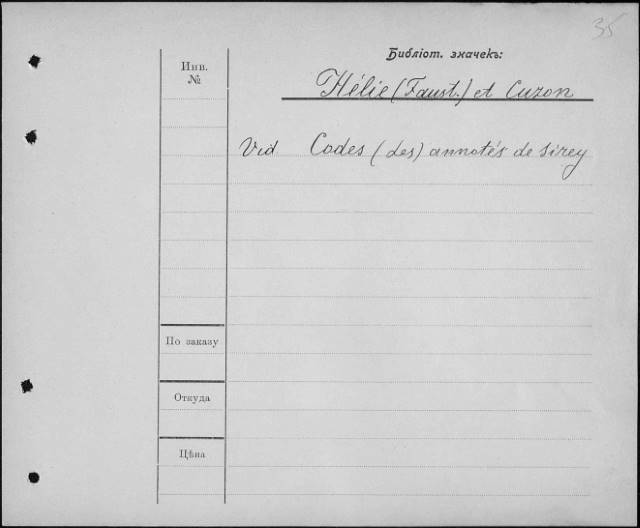 35
Библіот. значекъ:
Инв.
№
Hélie (Faust.) et Cuzon
Vid Codes (des) annotés de Sirey
По заказу
Откуда
Цѣна